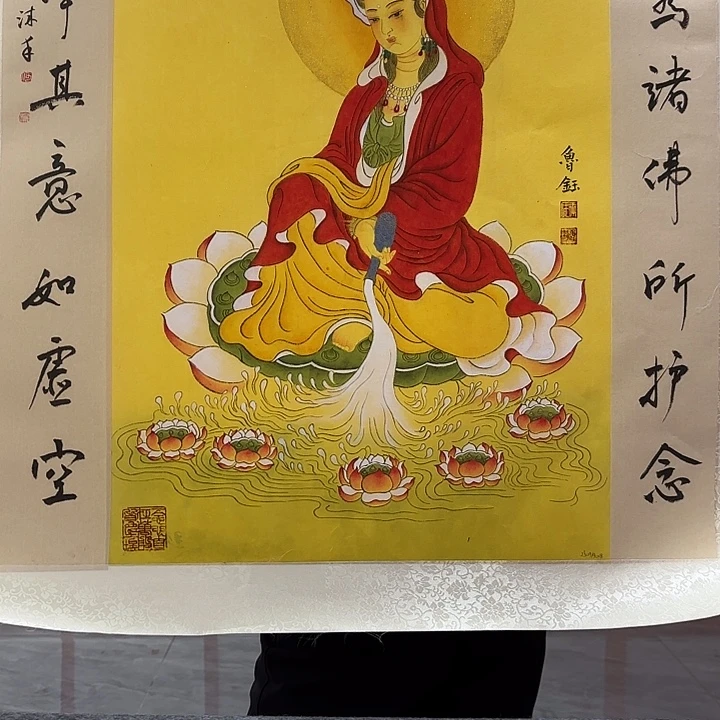 為諸佛所护念
魯鈺
淨其意如虛空
沐手